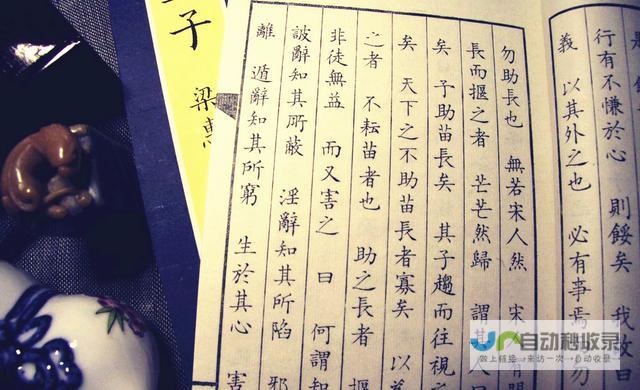 行有不慊於心 則餒矣 我故曰
義 以其外之也 必有事焉 勿
勿助長也 無若宋人然 宋 有閔
長而揠之者 芒芒然歸 謂其人曰
矣 子助苗長矣 其子趨而往視之
矣 天下之不助苗長者寡矣 以為
之者 不耘苗者也 助之長者 揠
非徒無益 而又害之 曰 何謂知
詖辭知其所蔽 淫辭知其所陷 邪
離 遁辭知其所窮 生於其心 害
子
梁惠
自动秒收录
做上链接→来访一次→自动收录